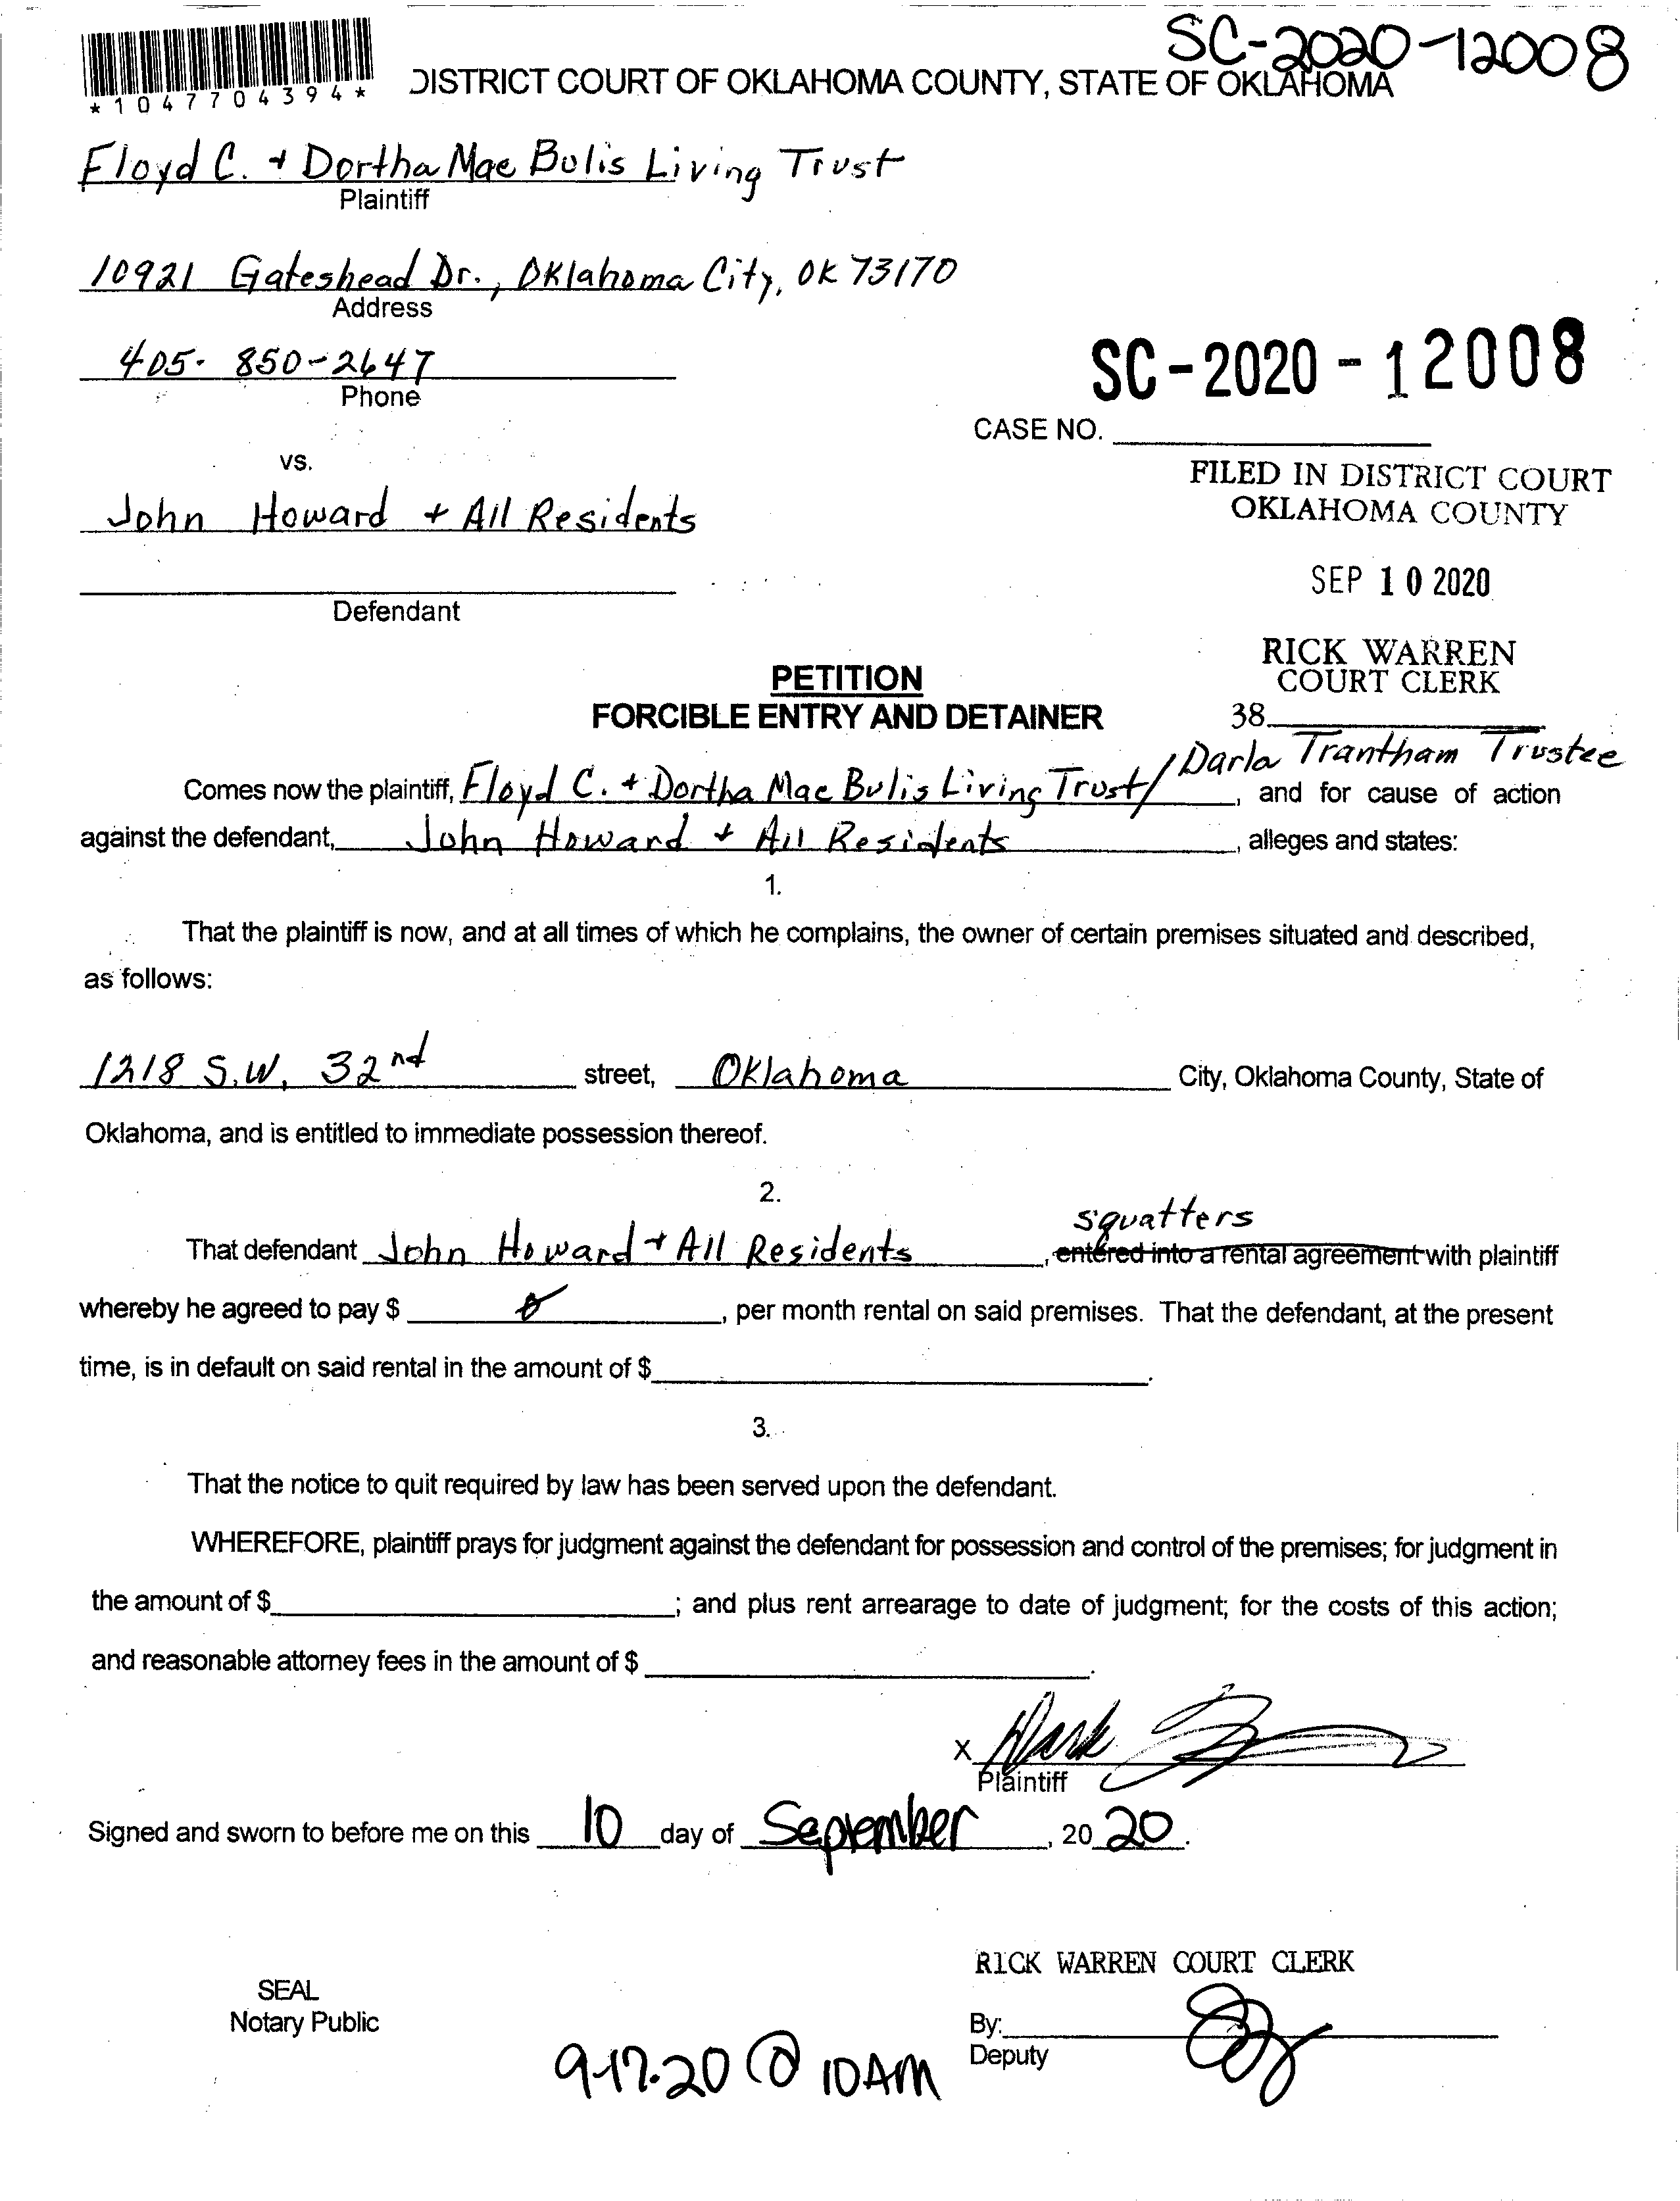 SC-2020-12008
*1047704394*
DISTRICT COURT OF OKLAHOMA COUNTY, STATE OF OKLAHOMA
Floyd C. + Dortha Mae Bulis Living Trust
Plaintiff
10921 Gateshead Dr., Oklahoma City, OK 73170
Address
405-850-2647
Phone
SC-2020-12008
CASE NO.
vs.
FILED IN DISTRICT COURT
OKLAHOMA COUNTY
John Howard + All Residents
SEP 10 2020
Defendant
RICK WARREN
COURT CLERK
38
PETITION
FORCIBLE ENTRY AND DETAINER
Comes now the plaintiff, Floyd C. + Dortha Mae Bulis Living Trust/ Darla Trantham Trustee, and for cause of action
against the defendant, John Howard + All Residents, alleges and states:
1.
That the plaintiff is now, and at all times of which he complains, the owner of certain premises situated and described,
as follows:
1218 S.W. 32nd street, Oklahoma City, Oklahoma County, State of
Oklahoma, and is entitled to immediate possession thereof.
2.
squatters
That defendant John Howard + All Residents, entered into a rental agreement with plaintiff
whereby he agreed to pay $ 0, per month rental on said premises. That the defendant, at the present
time, is in default on said rental in the amount of $.
3.
That the notice to quit required by law has been served upon the defendant.
WHEREFORE, plaintiff prays for judgment against the defendant for possession and control of the premises; for judgment in
the amount of $; and plus rent arrearage to date of judgment; for the costs of this action;
and reasonable attorney fees in the amount of $.
X
Plaintiff
Signed and sworn to before me on this 10 day of September, 2020.
RICK WARREN COURT CLERK
SEAL
Notary Public
By:
Deputy
9-17-20 @ 10AM